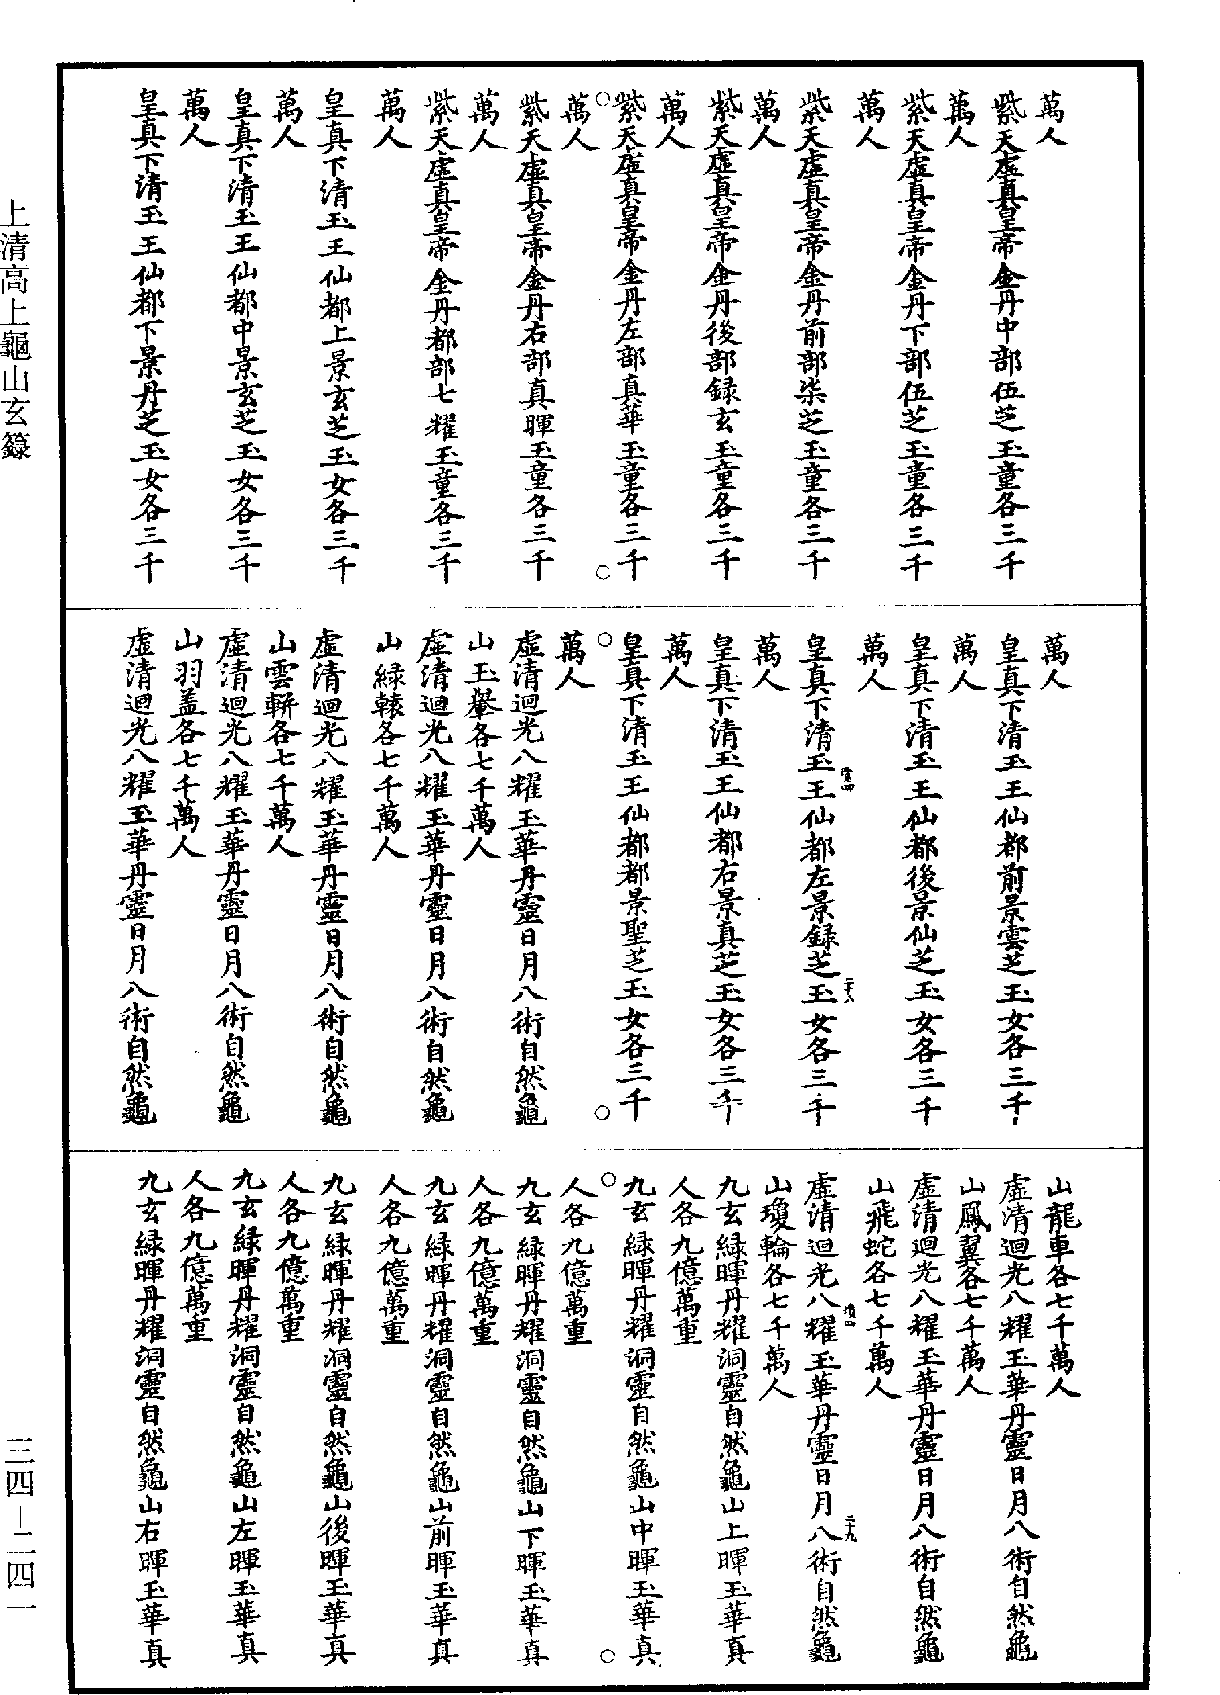 萬人
紫天虛真皇帝金丹中部伍芝玉童各三千
萬人
紫天虛真皇帝金丹下部伍芝玉童各三千
萬人
紫天虛真皇帝金丹前部柒芝玉童各三千
萬人
紫天虛真皇帝金丹後部録玄玉童各三千
萬人
紫天虛真皇帝金丹左部真華玉童各三千
萬人
紫天虛真皇帝金丹右部真暉玉童各三千
萬人
紫天虛真皇帝金丹都部七耀玉童各三千
萬人
皇真下清玉王仙都上景玄芝玉女各三千
萬人
皇真下清玉王仙都中景玄芝玉女各三千
萬人
皇真下清玉王仙都下景丹芝玉女各三千
萬人
皇真下清玉王仙都前景雲芝玉女各三千
萬人
皇真下清玉王仙都後景仙芝玉女各三千
萬人
皇真下清玉王仙都左景録芝玉女各三千
萬人
皇真下清玉王仙都右景真芝玉女各三千
萬人
皇真下清玉王仙都都景聖芝玉女各三千
萬人
虛清迴光八耀玉華丹靈日月八術自然龜
山玉轝各七千萬人
虛清迴光八耀玉華丹靈日月八術自然龜
山緑轅各七千萬人
虛清迴光八耀玉華丹靈日月八術自然龜
山雲軿各七千萬人
虛清迴光八耀玉華丹靈日月八術自然龜
山羽盖各七千萬人
虛清迴光八耀玉華丹靈日月八術自然龜
山龍車各七千萬人
虛清迴光八耀玉華丹靈日月八術自然龜
山鳳翼各七千萬人
虛清迴光八耀玉華丹靈日月八術自然龜
山飛蛇各七千萬人
虛清迴光八耀玉華丹靈日月八術自然龜
山瓊輪各七千萬人
九玄緑暉丹耀洞靈自然龜山上暉玉華真
人各九億萬重
九玄緑暉丹耀洞靈自然龜山中暉玉華真
人各九億萬重
九玄緑暉丹耀洞靈自然龜山下暉玉華真
人各九億萬重
九玄緑暉丹耀洞靈自然龜山前暉玉華真
人各九億萬重
九玄緑暉丹耀洞靈自然龜山後暉玉華真
人各九億萬重
九玄緑暉丹耀洞靈自然龜山左暉玉華真
人各九億萬重
九玄緑暉丹耀洞靈自然龜山右暉玉華真
上清高上龜山玄籙
三四－二四一
二十九